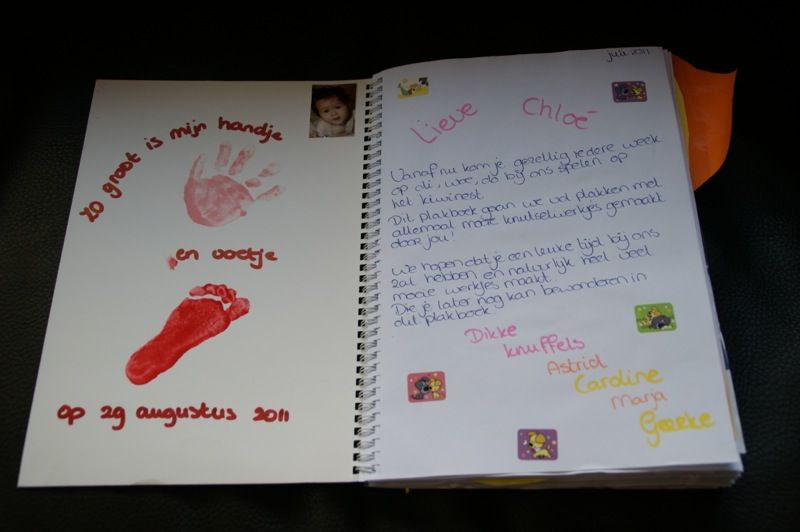 Zo groot is mijn handje
en voetje
op 29 augustus 2011
juli 2011
Lieve Chloë
Vanaf nu kom je gezellig iedere week
op di, woe, do bij ons spelen op
het kiwinest.
Dit plakboek gaan we vol plakken met
allemaal mooie knutselwerkjes gemaakt
door jou!
We hopen dat je een leuke tijd bij ons
zal hebben en natuurlijk heel veel
mooie werkjes maakt.
Die je later nog kan bewonderen in
dit plakboek.
Dikke
knuffels
Astrid
Caroline
Marja